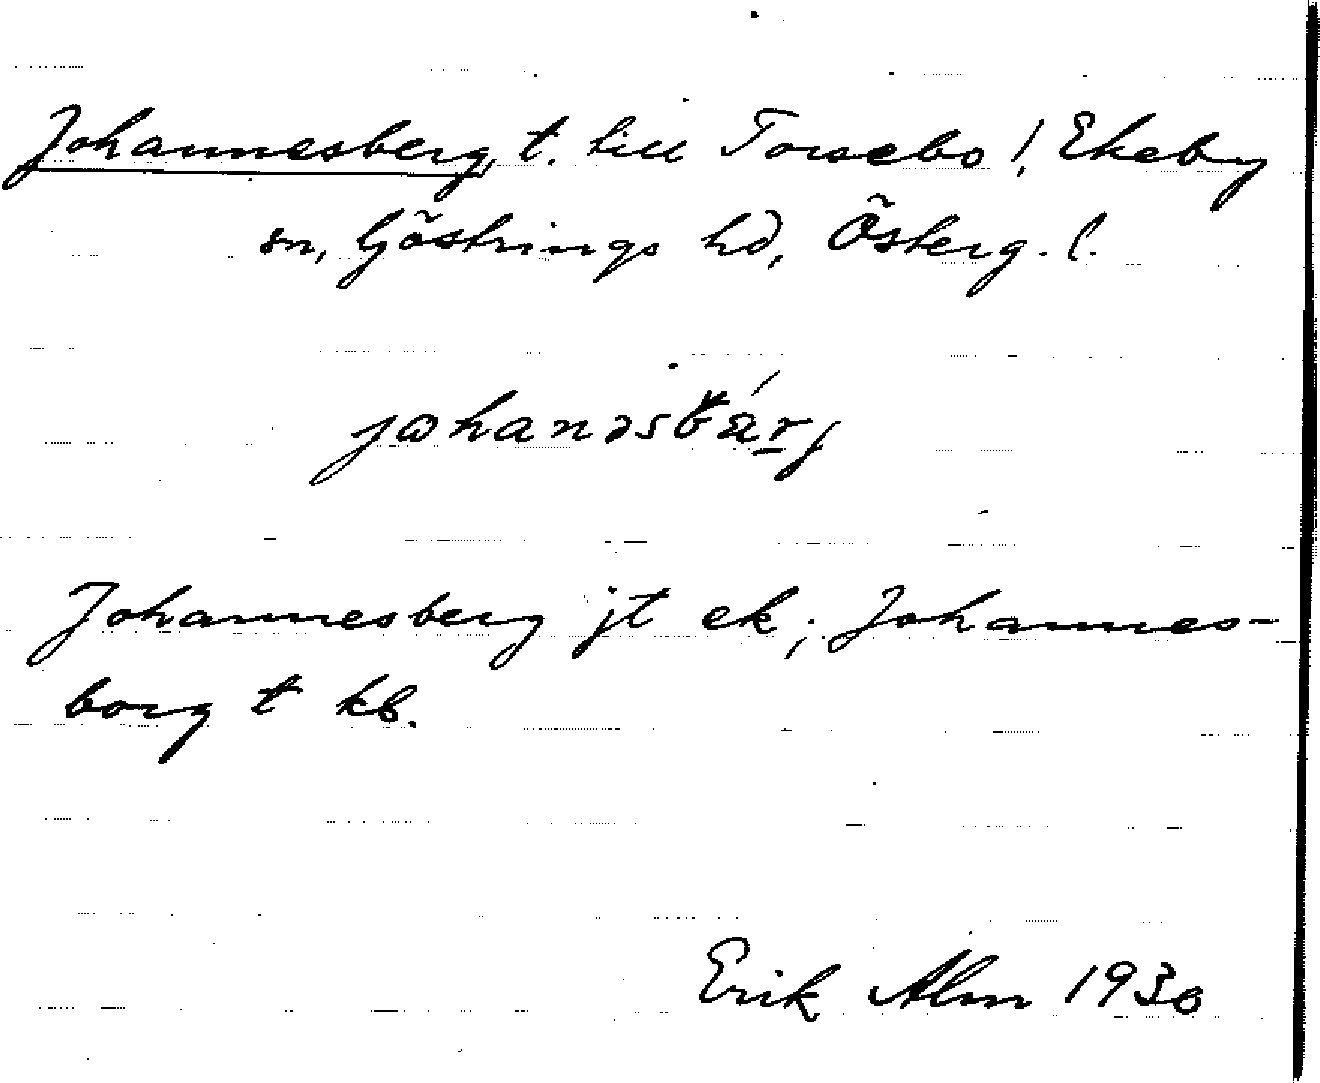 Johannesberg, t. till Torsebo !, Ekeby
sn, Göstrings hd, Österg. l.
johanəsbǽrj
Johannesberg jt ek; Johannes-
borg t kb.
Erik Alm 1930